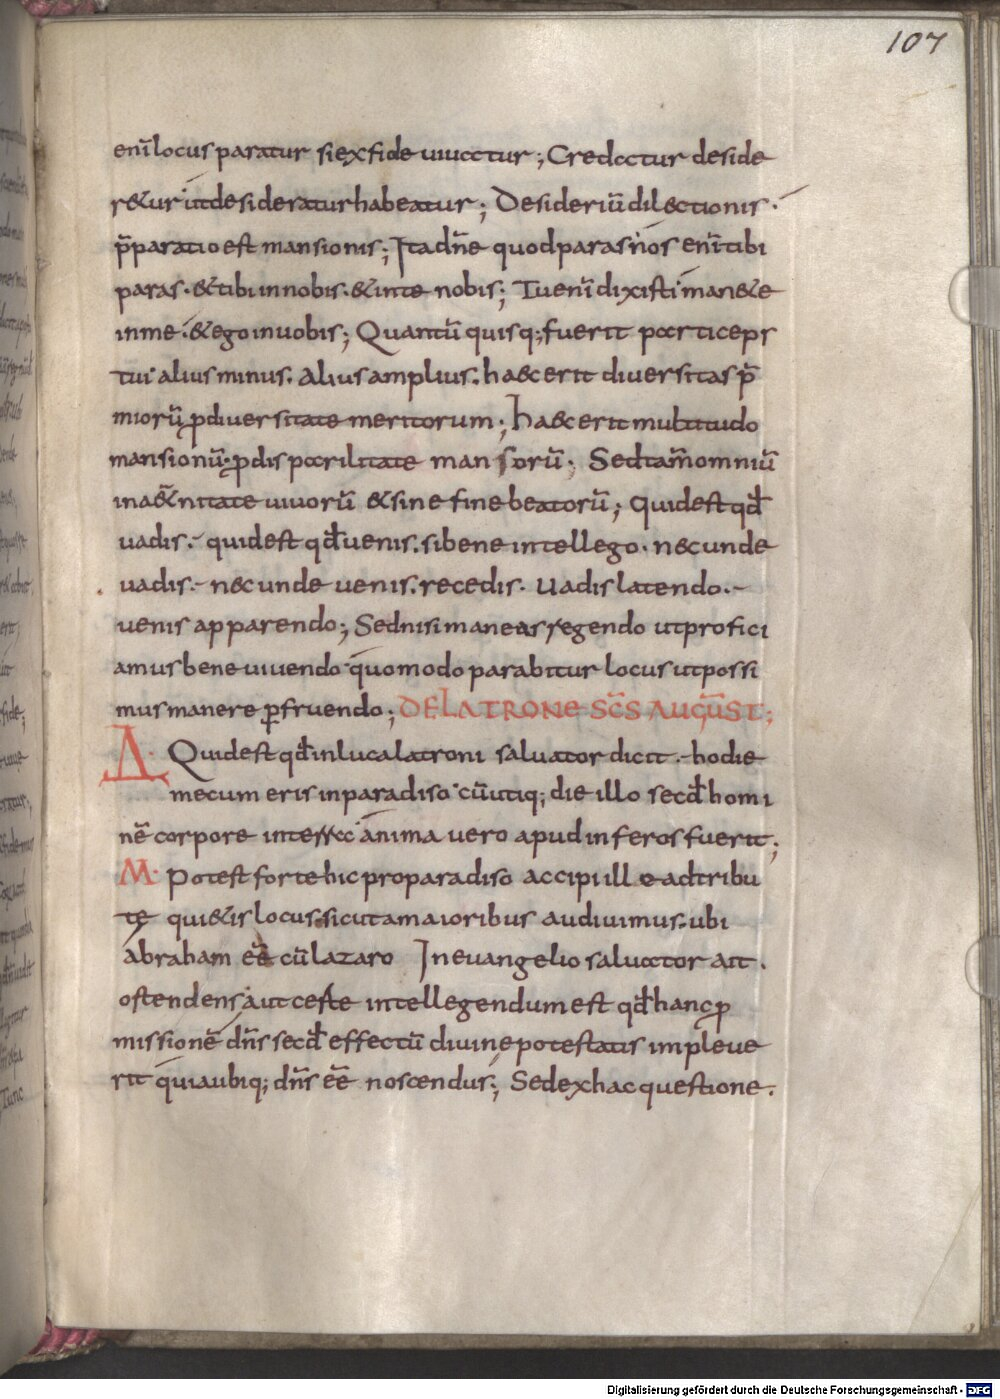 107
enī locus paratur si ex fide uiuatur; Credatur deside
r&ur ut desideratur habeatur; Desideriū dil&ctionis·
p̄paratio est mansionis; Ita dn̄e quod paras nos enī tibi
paras·&tibi in nobis·&in te nobis; Tu enī dixisti man&e
in me·&ego in uobis; Quantū quisq; fuerit particeps
tui alius minus. alius amplius. ha&c erit diuersitas p̄
miorū ꝓ diuersitate meritorum; ha&c erit multitudo
mansionū·ꝓ disparilitate mansorū; Sed tam̄ omniū
in a&̄nitate uiuorū &sine fine beatorū; quid est qđ
uadis·- quid est qđ uenis. si bene intellego·n&c unde
uadis·- n&c unde uenis. recedis· uadis latendo.-
uenis apparendo; Sed nisi maneas regendo ut profici
amus bene uiuendo·quomodo parabitur locus ut possi
mus manere ꝑfruendo; DE LATRONE SC̄S AUGUST̄;
Δ· Quid est qđ in luca latroni saluator dicit·- hodie
mecum eris in paradiso·cū utiq; die illo secđ homi
nē corpore in terra anima uero apud inferos fuerit;
M· Potest forte hic pro paradiso accipi ille adtribu
tę qui&is locus. sicut a maioribus audiuimus. ubi
abraham eē cū lazaro In euangelio saluator ait.
ostendens aut certe intellegendum est qđ hanc ꝓ
missionē dn̄s secđ effectū diuine potestatis impleue
rit quia ubiq; dn̄s eē noscendus; Sed ex hac questione.
Digitalisierung gefördert durch die Deutsche Forschungsgemeinschaft - DFG